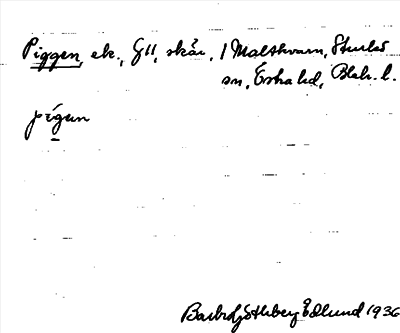 Piggen, ek., G11, skär, / Maltkvarn, Sturkö
sn, Östra hd, Blek. l.
pígen
Barbro Göthberg Edlund 1936